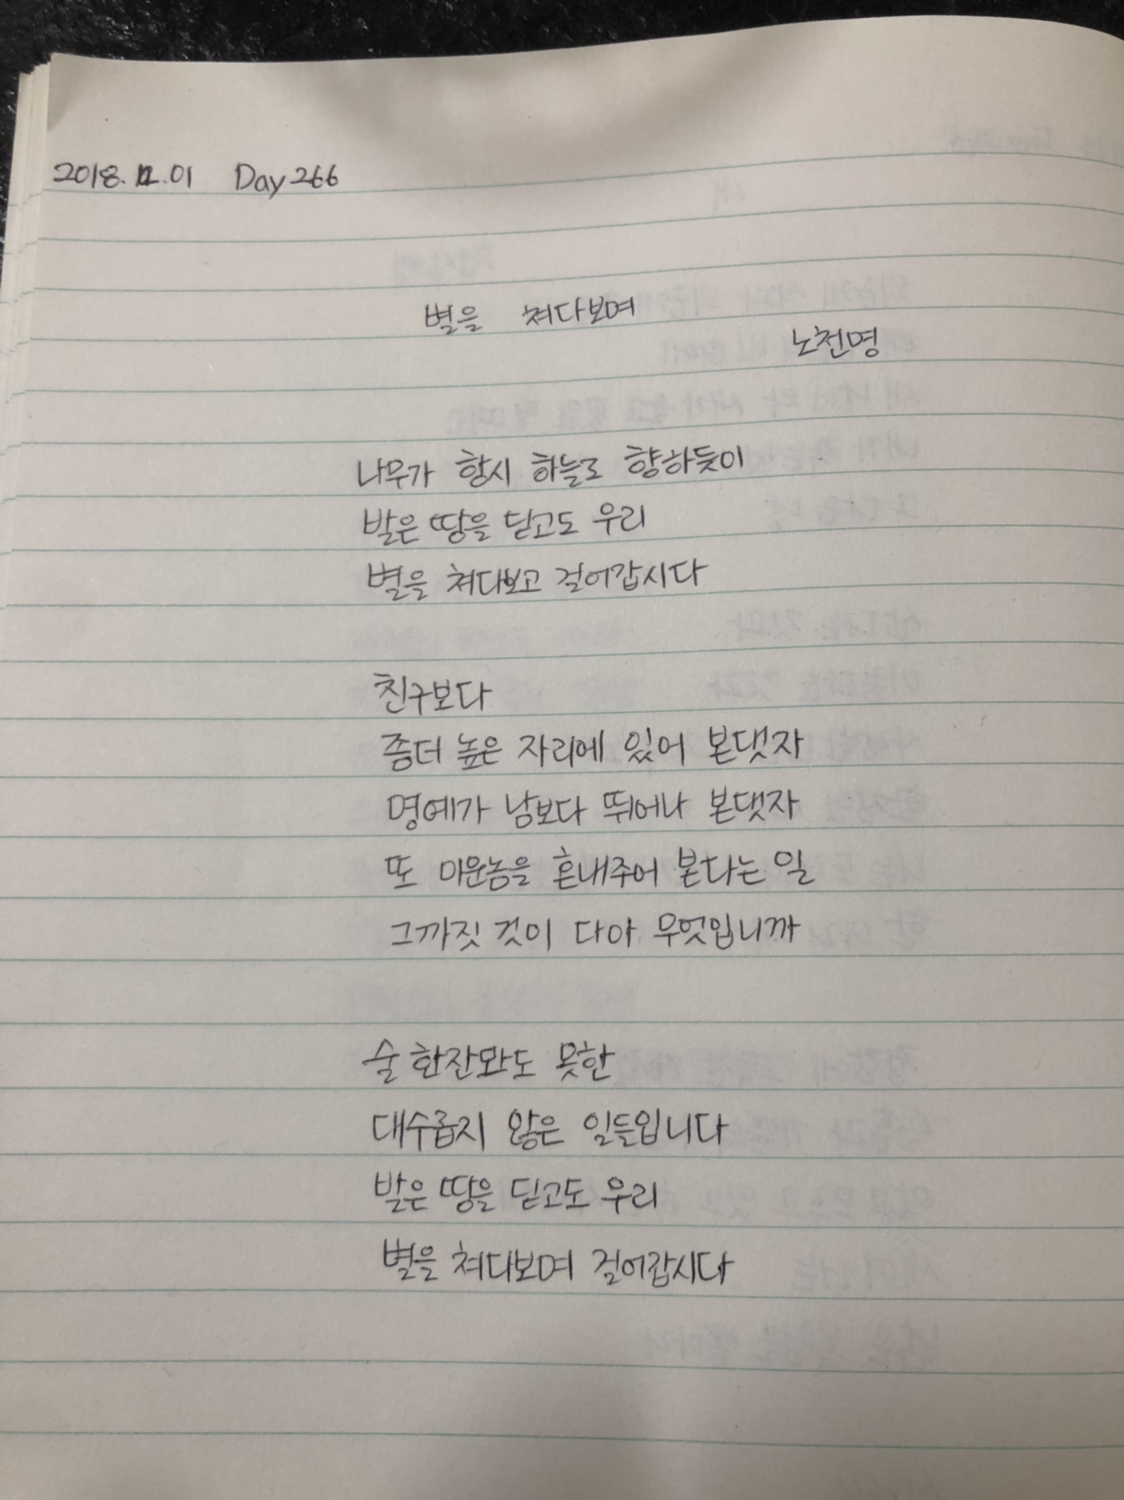 2018.12.01 Day 266
별을 쳐다보며
노천명
나무가 항시 하늘로 향하듯이
발은 땅을 딛고도 우리
별을 쳐다보고 걸어갑시다
친구보다
좀더 높은 자리에 있어 본댓자
명예가 남보다 뛰어나 본댓자
또 미운놈을 혼내주어 본다는 일
그까짓 것이 다아 무엇입니까
술 한잔만도 못한
대수롭지 않은 일들입니다
발은 땅을 딛고도 우리
별을 쳐다보며 걸어갑시다